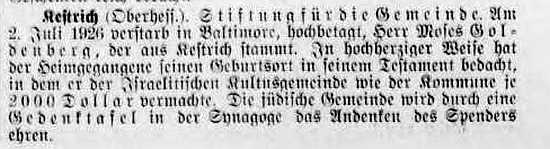 Kestrich (Oberhess.). Stiftung für die Gemeinde. Am
2. Juli 1926 verstarb in Baltimore, hochbetagt, Herr Moses Gol-
denberg, der aus Kestrich stammt. In hochherziger Weise hat
der Heimgegangene seinen Geburtsort in seinem Testament bedacht,
in dem er der Israelitischen Kultusgemeinde wie der Kommune je
2000 Dollar vermachte. Die jüdische Gemeinde wird durch eine
Gedenktafel in der Synagoge das Andenken des Spenders
ehren.